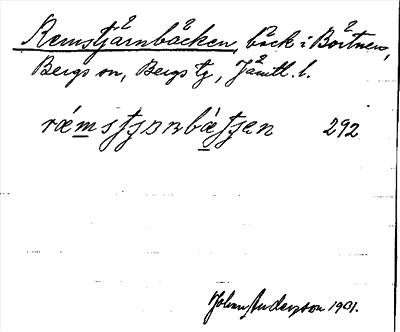 Remstjärnbäcken, bäck i Börtnens,
Bergs sn, Bergs tg, Jämtl. l.
ræmstjɔnbætjen 292
Johan Anderzson 1901.